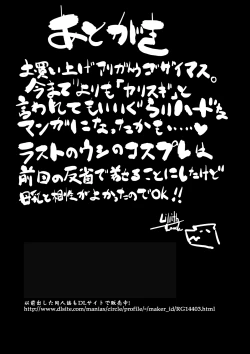 あとがき
お買い上げアリガトウゴザイマス。
今までよりも「ヤリスギ」と
言われてもいいぐらいハードな
マンガになったかも……♥
ラストのウシのコスプレは
前回の反省で抑えることにしたけど
母乳と相性がよかったのでOK!!
Lilith
以前出した同人誌もDLサイトで販売中!
http://www.dlsite.com/maniax/circle/profile/=/maker_id/RG14403.html